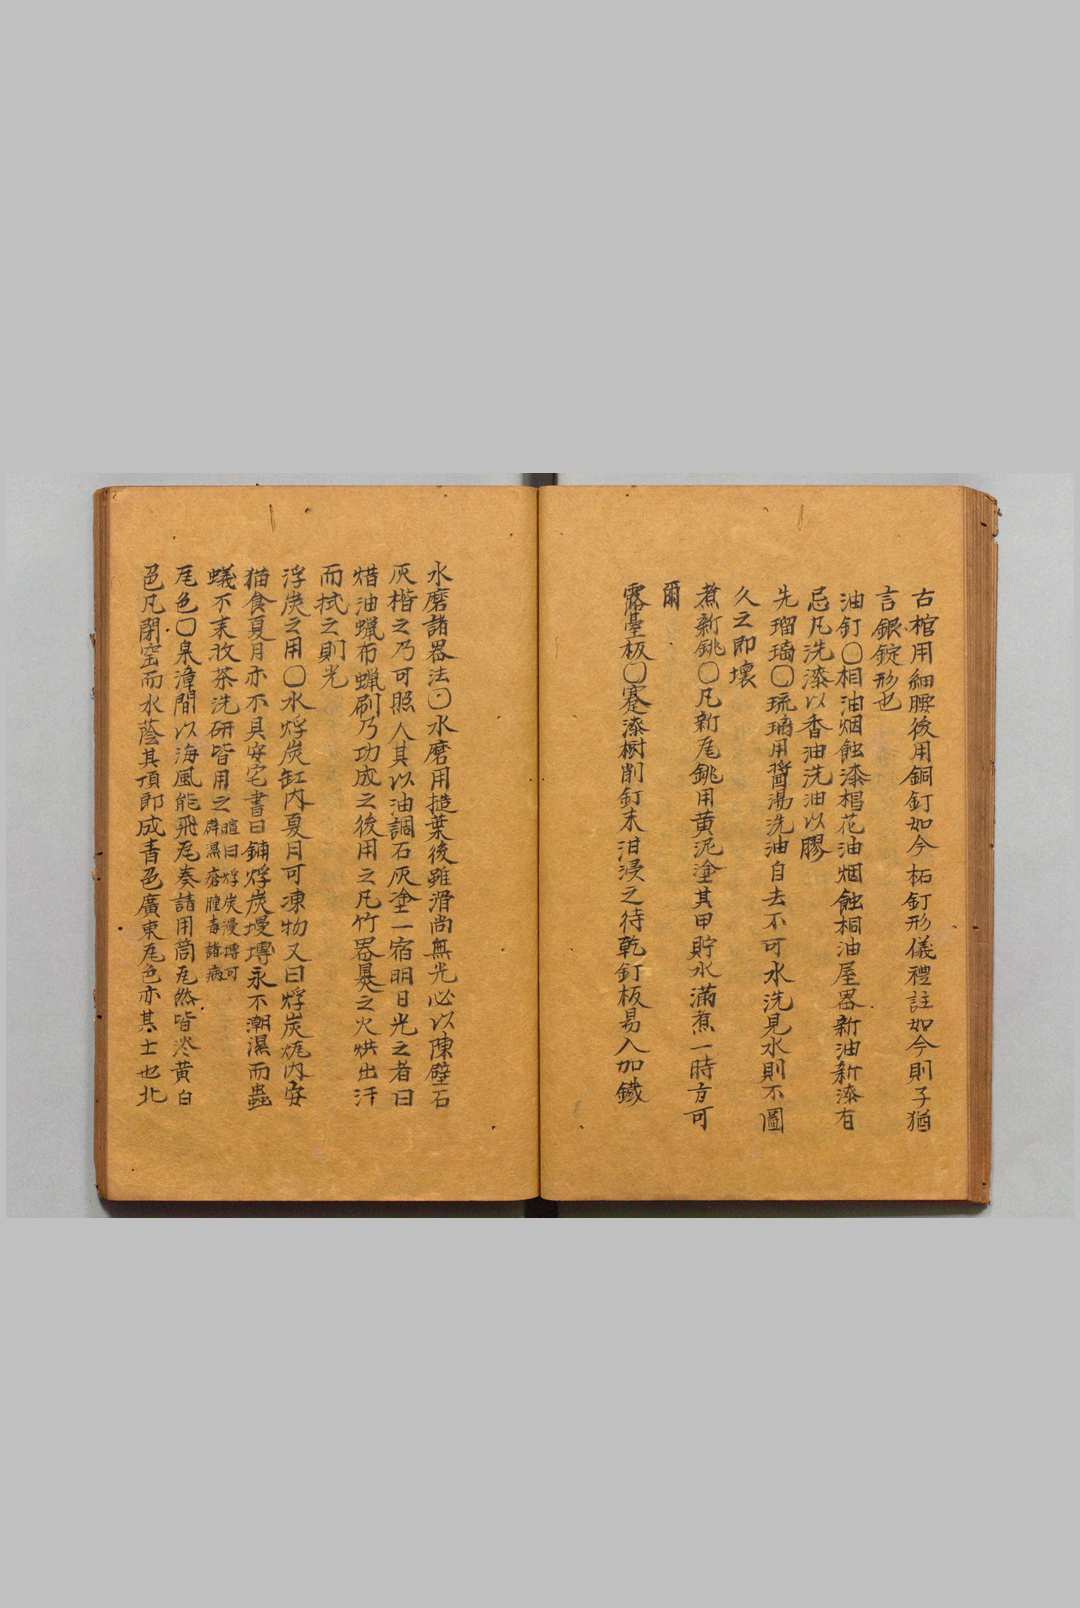 古棺用細腰後用銅釘如今柘釘形儀禮註如今則子猶
言銀錠形也
油釘〇相油烟蝕漆棺花油烟蝕桐油屋畧新油新漆有
忌凡洗漆以香油洗油以膠
先瑠璃〇琉璃用醬湯洗油自去不可水洗見水則不圖
久之即壞
煮新銚〇凡新瓦銚用黄泥塗其甲貯水滿煮一時方可
爾
露臺板〇蹇漆樹削釘末泔浸之待乾釘板易入加鐵
水磨諸器法〇水磨用㨋葉後雖滑尚無光必以陳壁石
灰楷之乃可照人其以油調石灰塗一宿明日光之者曰
焟油蝋布蝋刷乃功成之後用之凡竹器㬥之火烘出汗
而拭之則光
浮炭之用〇水烰炭缸内夏月可凍物又曰烰炭㼾内安
猫食夏月亦不臭安宅書曰鋪烰炭墁塼永不潮濕而蟲
蟻不來收茶洗研皆用之暄曰烰炭漫塼可
辟濕瘡腫毒諸病
瓦色〇泉漳間以海風能飛瓦奏請用筒瓦然皆淡黄白
色凡閉窑而水蔭其頂郎成青色廣東瓦色亦其士也北